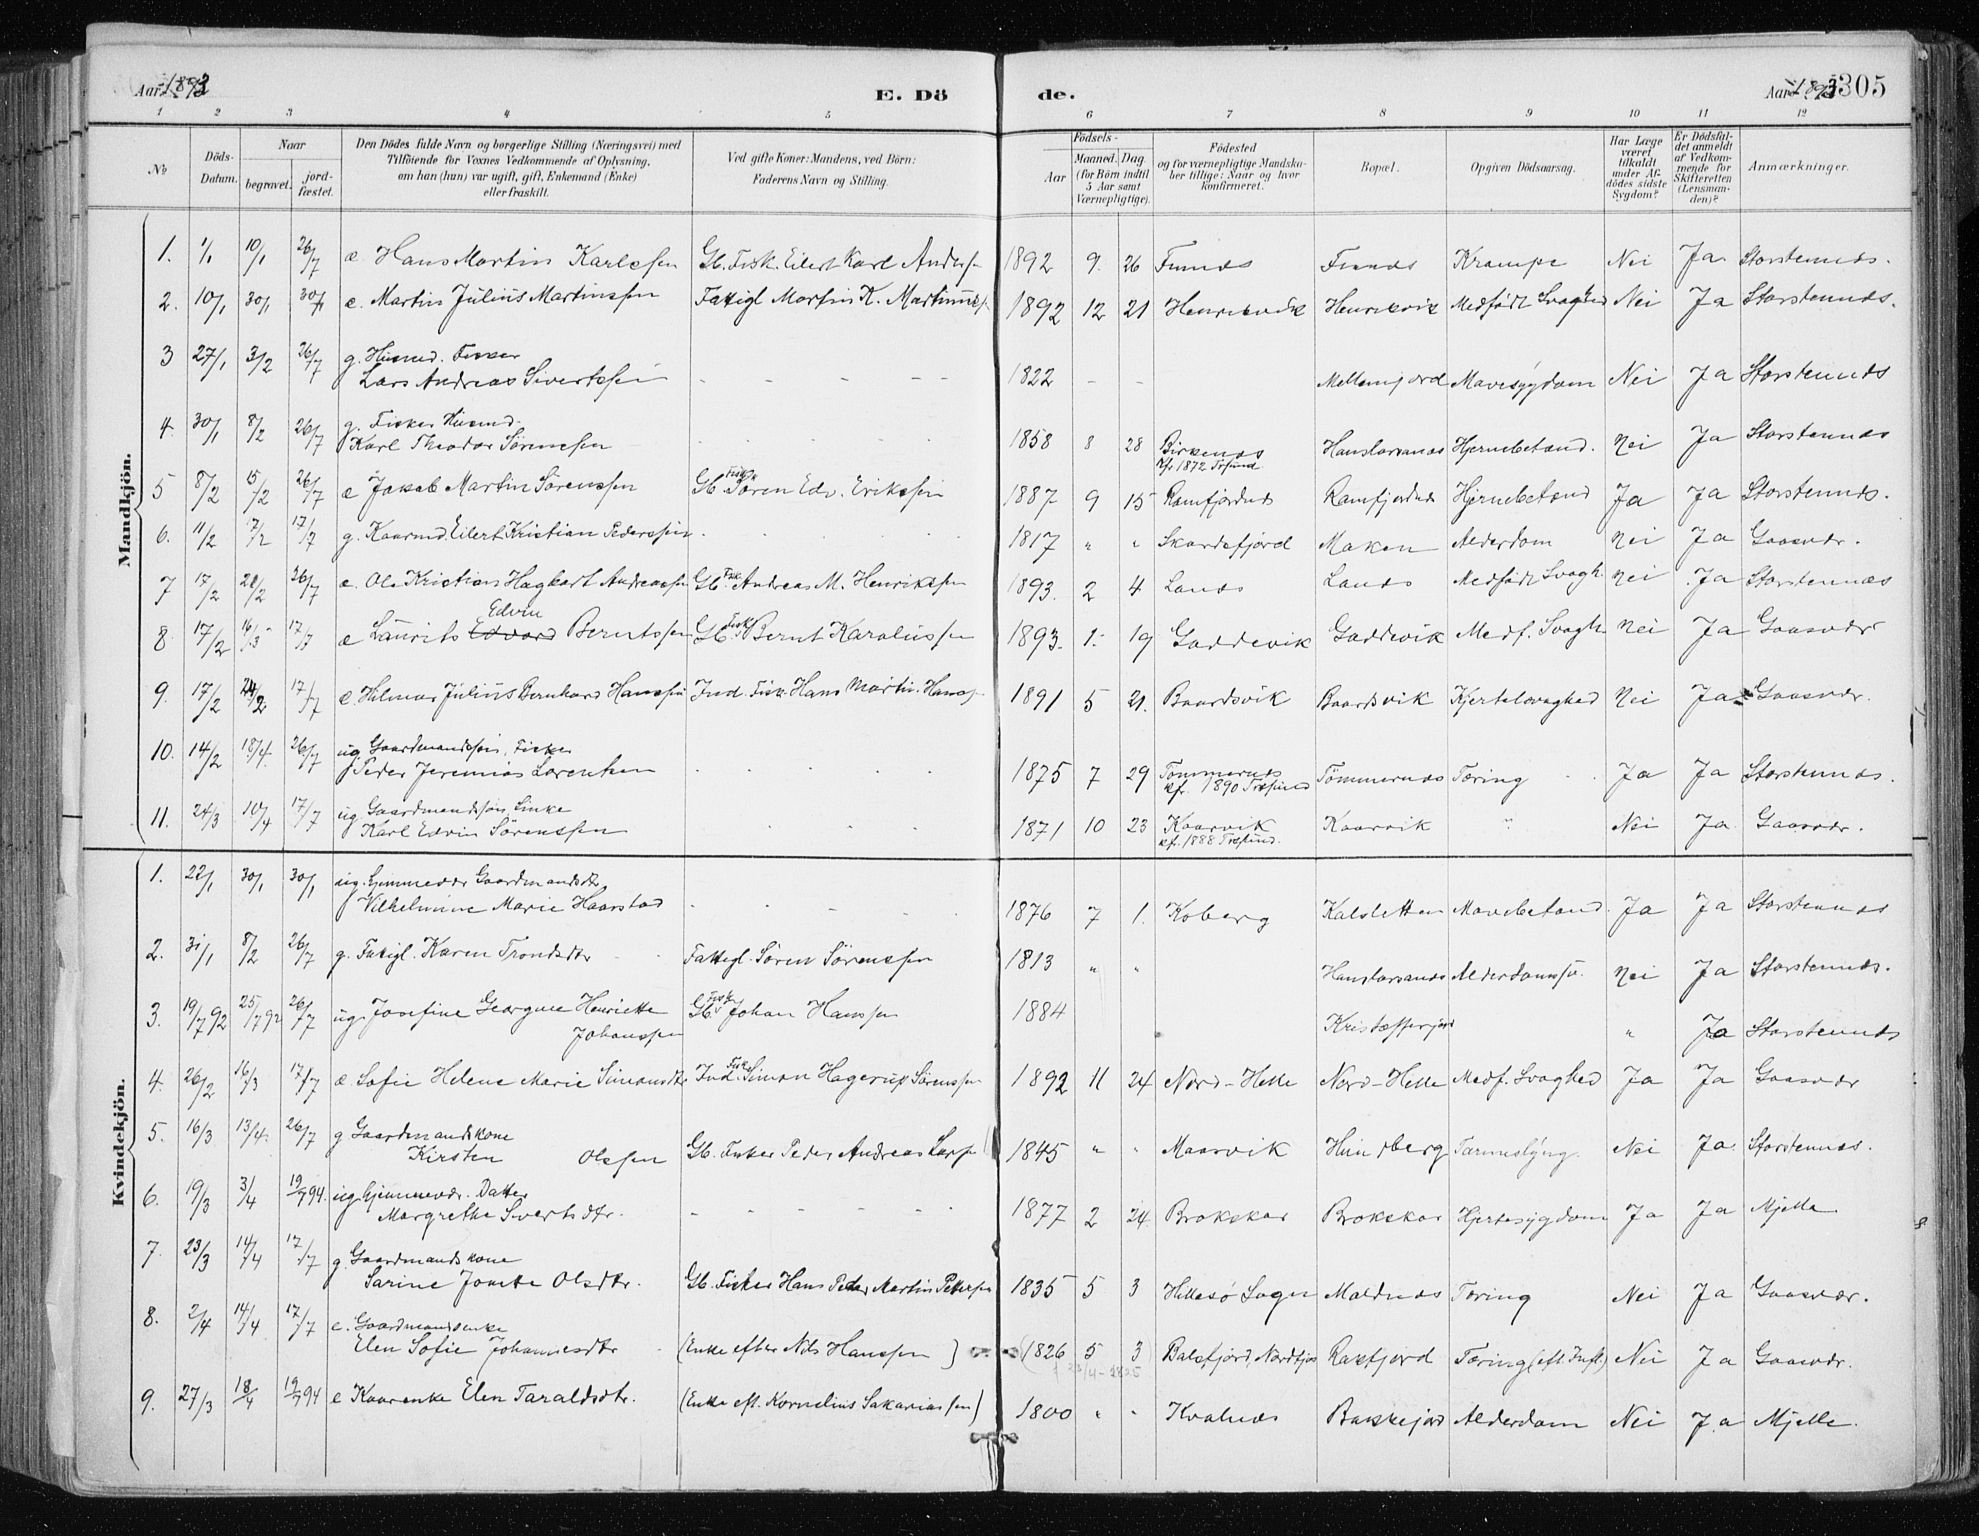 Aar 1893
E. Döde.
Aar 1893
305
1 2 3 4 5 6 7 8 9 10 11 12
№
Döds-Datum.
Naar
begravet.
jord-fæstet.
Den Dödes fulde Navn og borgerlige Stilling (Næringsvei) med
Tilföiende for Voxnes Vedkommende af Oplysning,
om han (hun) var ugift, gift, Enkemand (Enke)
eller fraskilt.
Ved gifte Koner: Mandens, ved Börn:
Faderens Navn og Stilling.
Födsels-
Aar
Maaned. Dag.
(for Börn indtil
5 Aar samt
Værnepligtige).
Födested
og for værnepligtige Mandska-
ber tillige: Naar og hvor
konfirmeret.
Bopæl.
Opgiven Dödsaarsag.
Har Læge
været
tilkaldt
under Af-
dödes sidste
Sygdom?
Er Dödsfal-
det anmeldt
af Vedkom-
mende for
Skifteretten
(Lensman-
den)?
Anmærkninger.
Mandkjön.
1. 1/1 10/1 26/7 e. Hans Martin Karlssen Gb. Fisk. Eilert Karl Anders. 1892 9. 26 Finnes Krampe Nei Ja Storstennes.
2. 10/1 30/1 30/1 e. Martin Julius Martinssen Fattigl Martin K. 1892 12 21 Henrikvik Henrikvik Medfödt Svaghed Nei Ja Storstennes.
3 27/1 3/2 26/7 g. Husmd. Fisker
Lars Andreas Sivertssen - - - - - 1822 - - Mellemjord Mavesygdom Nei Ja Storstennes
4. 30/1 8/2 26/7 g. Fisker Husmd.
Karl Theodor Sörenssen 1858 8 28 Birkenes Hanslarsanes Hjernebetænd. Nei Ja Storstennes
kfr. 1872 Trsund
5 8/2 15/2 26/7 e Jakob Martin Sörenssen Gb. Fisk. Sören Edv. Erikssen 1887 9 15 Ramfjordnes Ramfjordnes Hjernebetænd Ja Ja Storstennes.
6. 11/2 17/2 17/7 g. Kaarmd. Eilert Kristian Pederssen 1817 " " Skardsfjord Maken Alderdom Nei Ja Gaasvær.
7 17/2 26/7 e. Ole Kristian Hagbart Andreassen Gb. Fisk. Andreas M. Henrikssen 1893. 2 4 Lanes Lanes Medfödt Svagh. Nei Ja Storstennæs
8 17/2 17/7 e Laurits Edvard Edvin Berntssen Gb. Fisk. Bernt Karoliussen 1893. 1. 19 Gaddevik Gaddevik Medf. Svagh. Nei Ja Gaasvær
9. 17/2 24/2 17/7 e Hilmar Julius Bernhard Hanssen Ind. Fisk. Hans Martin Hanss. 1891 5 21. Baardsvik Baardsvik Kjertelsvaghed Nei Ja Gaasvær.
10. 14/2 18/4. 26/7 ug. Gaardmandssön, Fisker
Peder Jeremias Lorentsen 1875 7 29 Tömmernes Tömmernes Tæring Ja Ja Storstennes.
kf. 1890 Træsund
11. 24/3 10/4 17/7 ug Gaardmandssön, Sinke
Karl Edvin Sörenssen 1871 10 23 Kaarvik Kaarvik " Nei Ja Gaasvær.
kf. 1888 Træsund.
Kvindekjön.
1. 22/1 30/1 30/1 ug. hjemmevær. Gaardmandsdtr
Vilhelmine Marie Haarstad 1876 7 1. Koberg Kalsletten Mavebetænd. Ja Ja Storstennes
2. 31/1 8/2 26/7 g. Fatigl. Karen Trondsdtr Fattigl. Sören Sörenssen 1813 " " Hanslarsanes Nei Ja Storstennes.
3. 19/7 92 25/7 92 26/7 ug Josefine Georgine Henriette
Johanssen Gb. Fisk. Johan Hanssen 1884 Kristofferjord " Ja Storstennes
4. 26/2 16/3 17/7 e. Sofie Helene Marie Simonsdtr Ind. Fisk. Simon Hagerup Sörenssen 1892 11 24 Nord-Helle Nord-Helle Medf. Svaghed Ja Ja Gaasvær
5. 16/3 13/4. 26/7 g Gaardmandskone
Kirsten Olssen Gb. Fisker Peder Andreas Larss. 1845 " " Maarvik Hundberg Tarmeslyng. Nei Ja Storstennes.
6. 19/3 3/4 19/7 94. ug hjemmevær. Datter
Margrethe Sivertsdtr. - - - - - - 1877 2 24. Brokskar Brokskar Hjertesygdom Ja Ja Mjelle
7. 23/3 14/4 17/7 g. Gaardmandskone
Sarine Olsdtr. Gb. Fisker Hans Peder Martin Pettersen 1835 5 3 Hillesö Sogn Maldnes Tæring Nei Ja Gaasvær.
8. 2/4 14/4 17/7 e. Gaardmandsenke
Elen Sofie Johannesdtr (Enke efter Nils Hanssen) (1826 5 3) Balsfjord, Nordfjos Raxfjord Tæring (eft. Infl.) Nei Ja Gaasvær.
9. 27/3 18/4 19/7 94 e Kaarenke Elen Taraldsdtr. (Enke eft. Kornelius Sakariassen) 1800 " " Kvalnes Alderdom Nei Ja Mjelle.